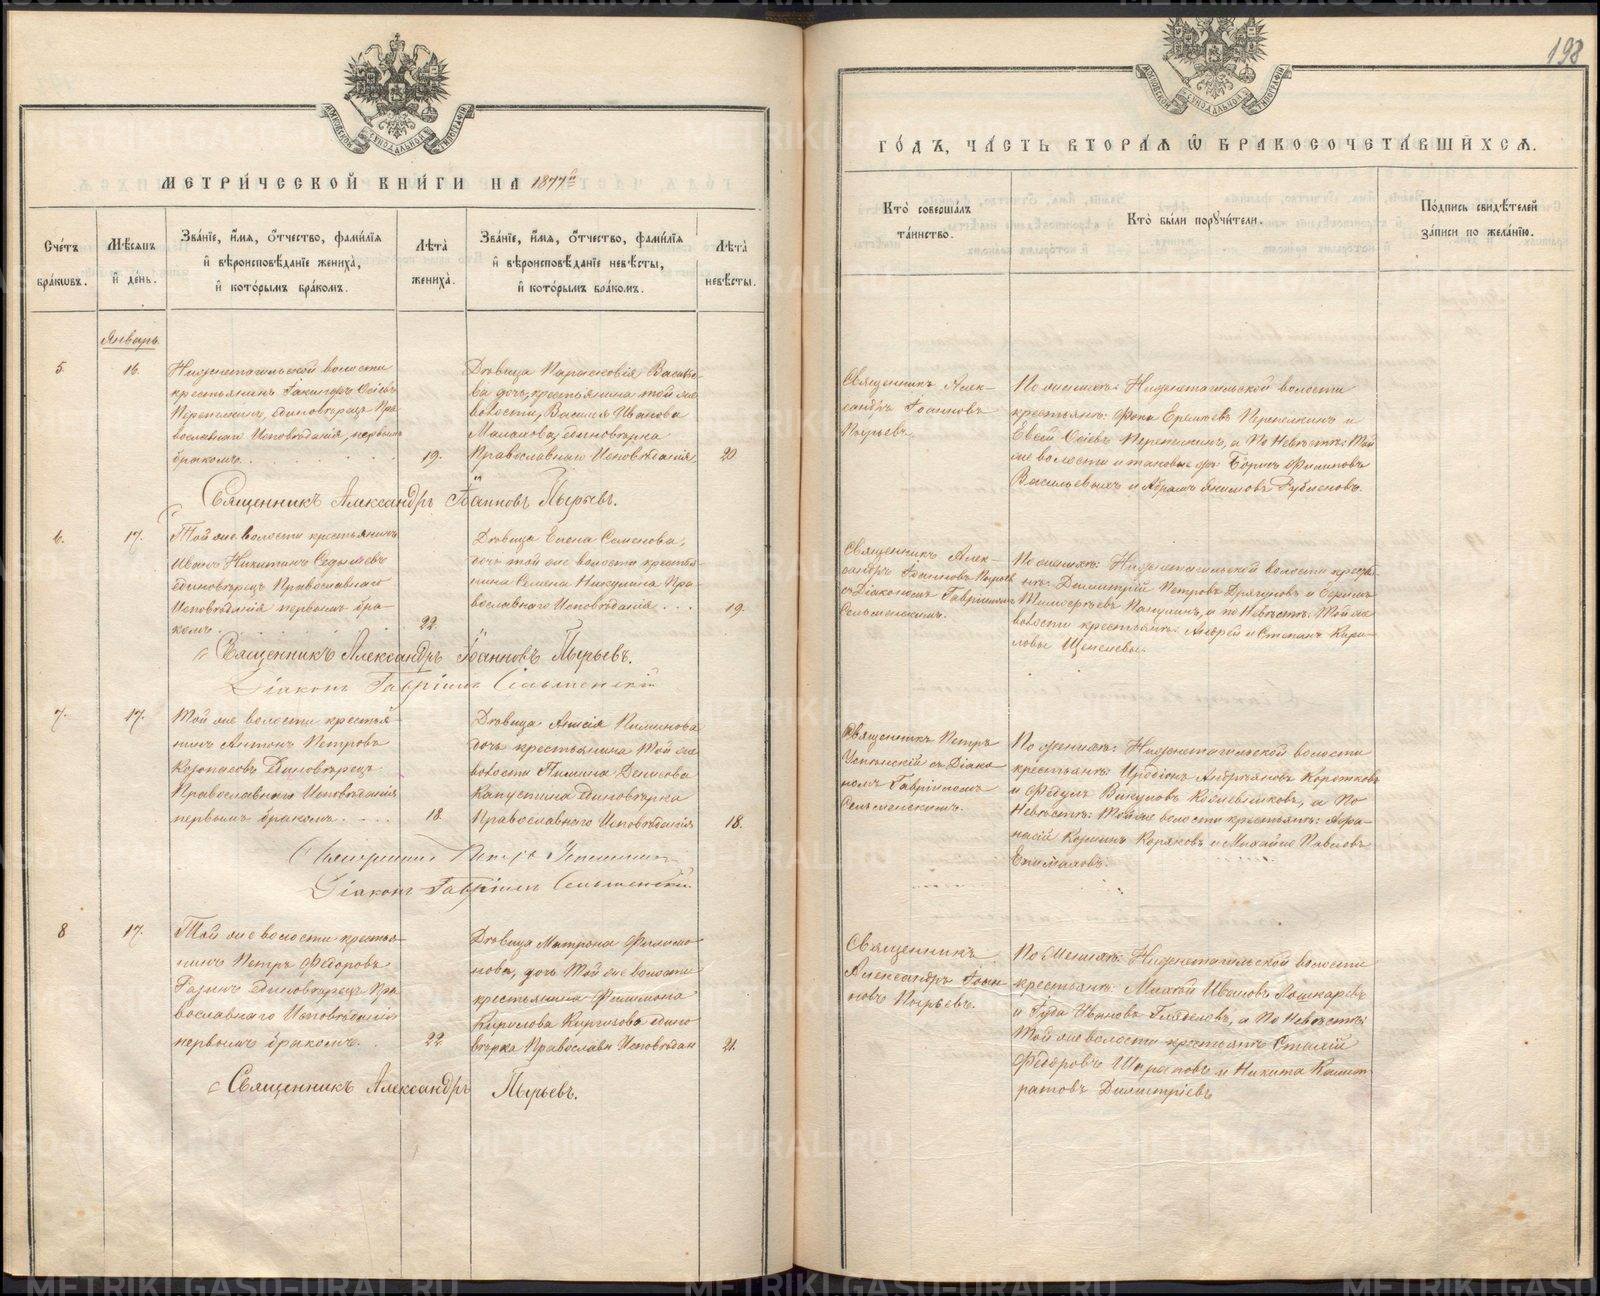 МЕТРИ́ЧЕСКОЙ КНИ́ГИ НА 1877й
Сче́тъ бра́кѡвъ.
Мѣ́сяцъ и҆ де́нь.
Зва́нїе, и҆́мѧ, ѻ҆́тчество, фами́лїѧ и҆ вѣроисповѣ́данїе жениха̀, и҆ кото́рымъ бра́комъ.
Лѣ́та жениха̀.
Зва́нїе, и҆́мѧ, ѻ҆́тчество, фами́лїѧ и҆ вѣроисповѣ́данїе невѣ́сты, и҆ кото́рымъ бра́комъ.
Лѣ́та невѣ́сты.
Январь
5.
16.
Нижнетагильской волости
крестьянинъ Осіевъ
Перепелкинъ, единовѣрецъ Пра-
вославнаго Исповѣданія, первымъ
бракомъ.
19.
Дѣвица Парасковія Василье-
ва дочь, крестьянина той же
волости, Василія Иванова
Малахова, единовѣрка
Православнаго Исповѣданія,
20.
Священникъ Александръ Іоанновъ Пырьевъ.
6.
17.
Той же волости крестьянинъ
Иванъ Никитинъ
единовѣрецъ Православнаго
Исповѣданія первымъ бра-
комъ.
22.
Дѣвица Елена Семенова,
дочь той же волости крестья-
нина Семена Никулина Пра-
вославнаго Исповѣданія . . .
19.
Священникъ Александръ Іоанновъ Пырьевъ.
Діаконъ Гавріилъ Сельменскій
7.
17.
Той же волости крестья-
нинъ Антонъ Петровъ
Коропасовъ Единовѣрецъ
Православнаго Исповѣданія
первымъ бракомъ. . . .
18.
Дѣвица Анисія Пиминова
дочь крестьянина той же
волости Пимина Денисова
Капустина единовѣрка
Православнаго Исповѣданія
18.
Священникъ Петръ Успенскій
Діаконъ Гавріилъ Сельменскій
8
17.
Той же волости крестья-
нинъ Петръ Федоровъ
Единовѣрецъ Пра-
вославнаго Исповѣданія
первымъ бракомъ.
22.
Дѣвица Матрона Филимо-
нова, дочь той же волости
крестьянина Филимона
Кирилова Киргизова едино-
вѣрка Православн Исповѣдан
21.
Священникъ Александръ Пырьевъ.
198
ГО́ДЪ, ЧА́СТЬ ВТОРА́Ѧ Ѡ҆ БРАКОСОЧЕТА́ВШИХСѦ.
Кто̀ соверша́лъ та́инство.
Кто̀ бы́ли поручи́тели.
По́дпись свидѣ́телей за́писи по жела́нїю.
Священникъ Алек-
сандръ Іоанновъ
Пырьевъ.
По женихѣ: Нижнетагильской волости
крестьяне: Фока Еремѣевъ Перепелкинъ и
Евсей Осіевъ Перепелкинъ, а по Невѣстѣ: Той
же волости и таковые же: Борисъ Филиповъ
Васильевыхъ и Абрамъ Рубленовъ.
Священникъ Алек-
сандръ Іоанновъ Пырьев
съ Діакономъ Гавріиломъ
Сельменскимъ.
По женихѣ: Нижнетагильской волости крестья-
не: Димитрій Петровъ Дрягуновъ и Борисъ
Тимофѣевъ Никулинъ, а по Невѣстѣ: Той же
волости крестьяне: Андрей и Степанъ Кири-
ловы Щепелевы.
Священникъ Петръ
Успенскій съ Діако-
номъ Гавріиломъ
Сельменскимъ.
По женихѣ: Нижнетагильской волости
крестьяне: Иродіонъ Андреяновъ Коротковъ
и Федулъ Викуловъ Кожевниковъ, а по
Невѣстѣ: Той же волости крестьяне: Афа-
насій Коряковъ и Михайло Павловъ
Священникъ
Александръ Іоан-
новъ Пырьевъ.
По женихѣ: Нижнетагильской волости
крестьяне: Ивановъ Лошкаревъ
и Гуда Ивановъ а по Невѣстѣ:
Той же волости крестьяне
Федоровъ и Никита Калист-
ратовъ Димитріевъ